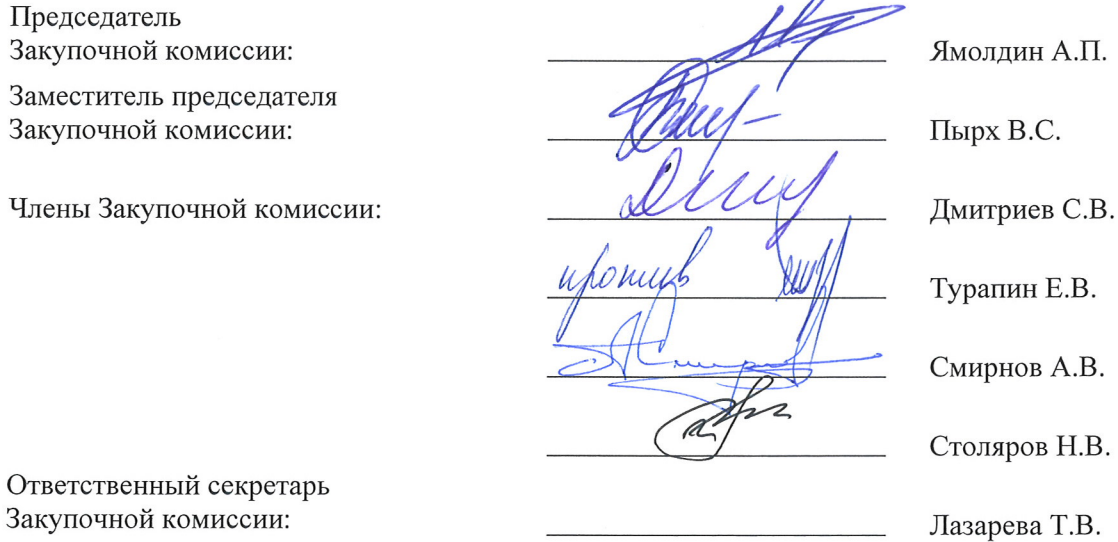 Председатель
Закупочной комиссии: Ямолдин А.П.
Заместитель председателя
Закупочной комиссии: Пырх В.С.
Члены Закупочной комиссии: Дмитриев С.В.
против Турапин Е.В.
Смирнов А.В.
Столяров Н.В.
Ответственный секретарь
Закупочной комиссии: Лазарева Т.В.